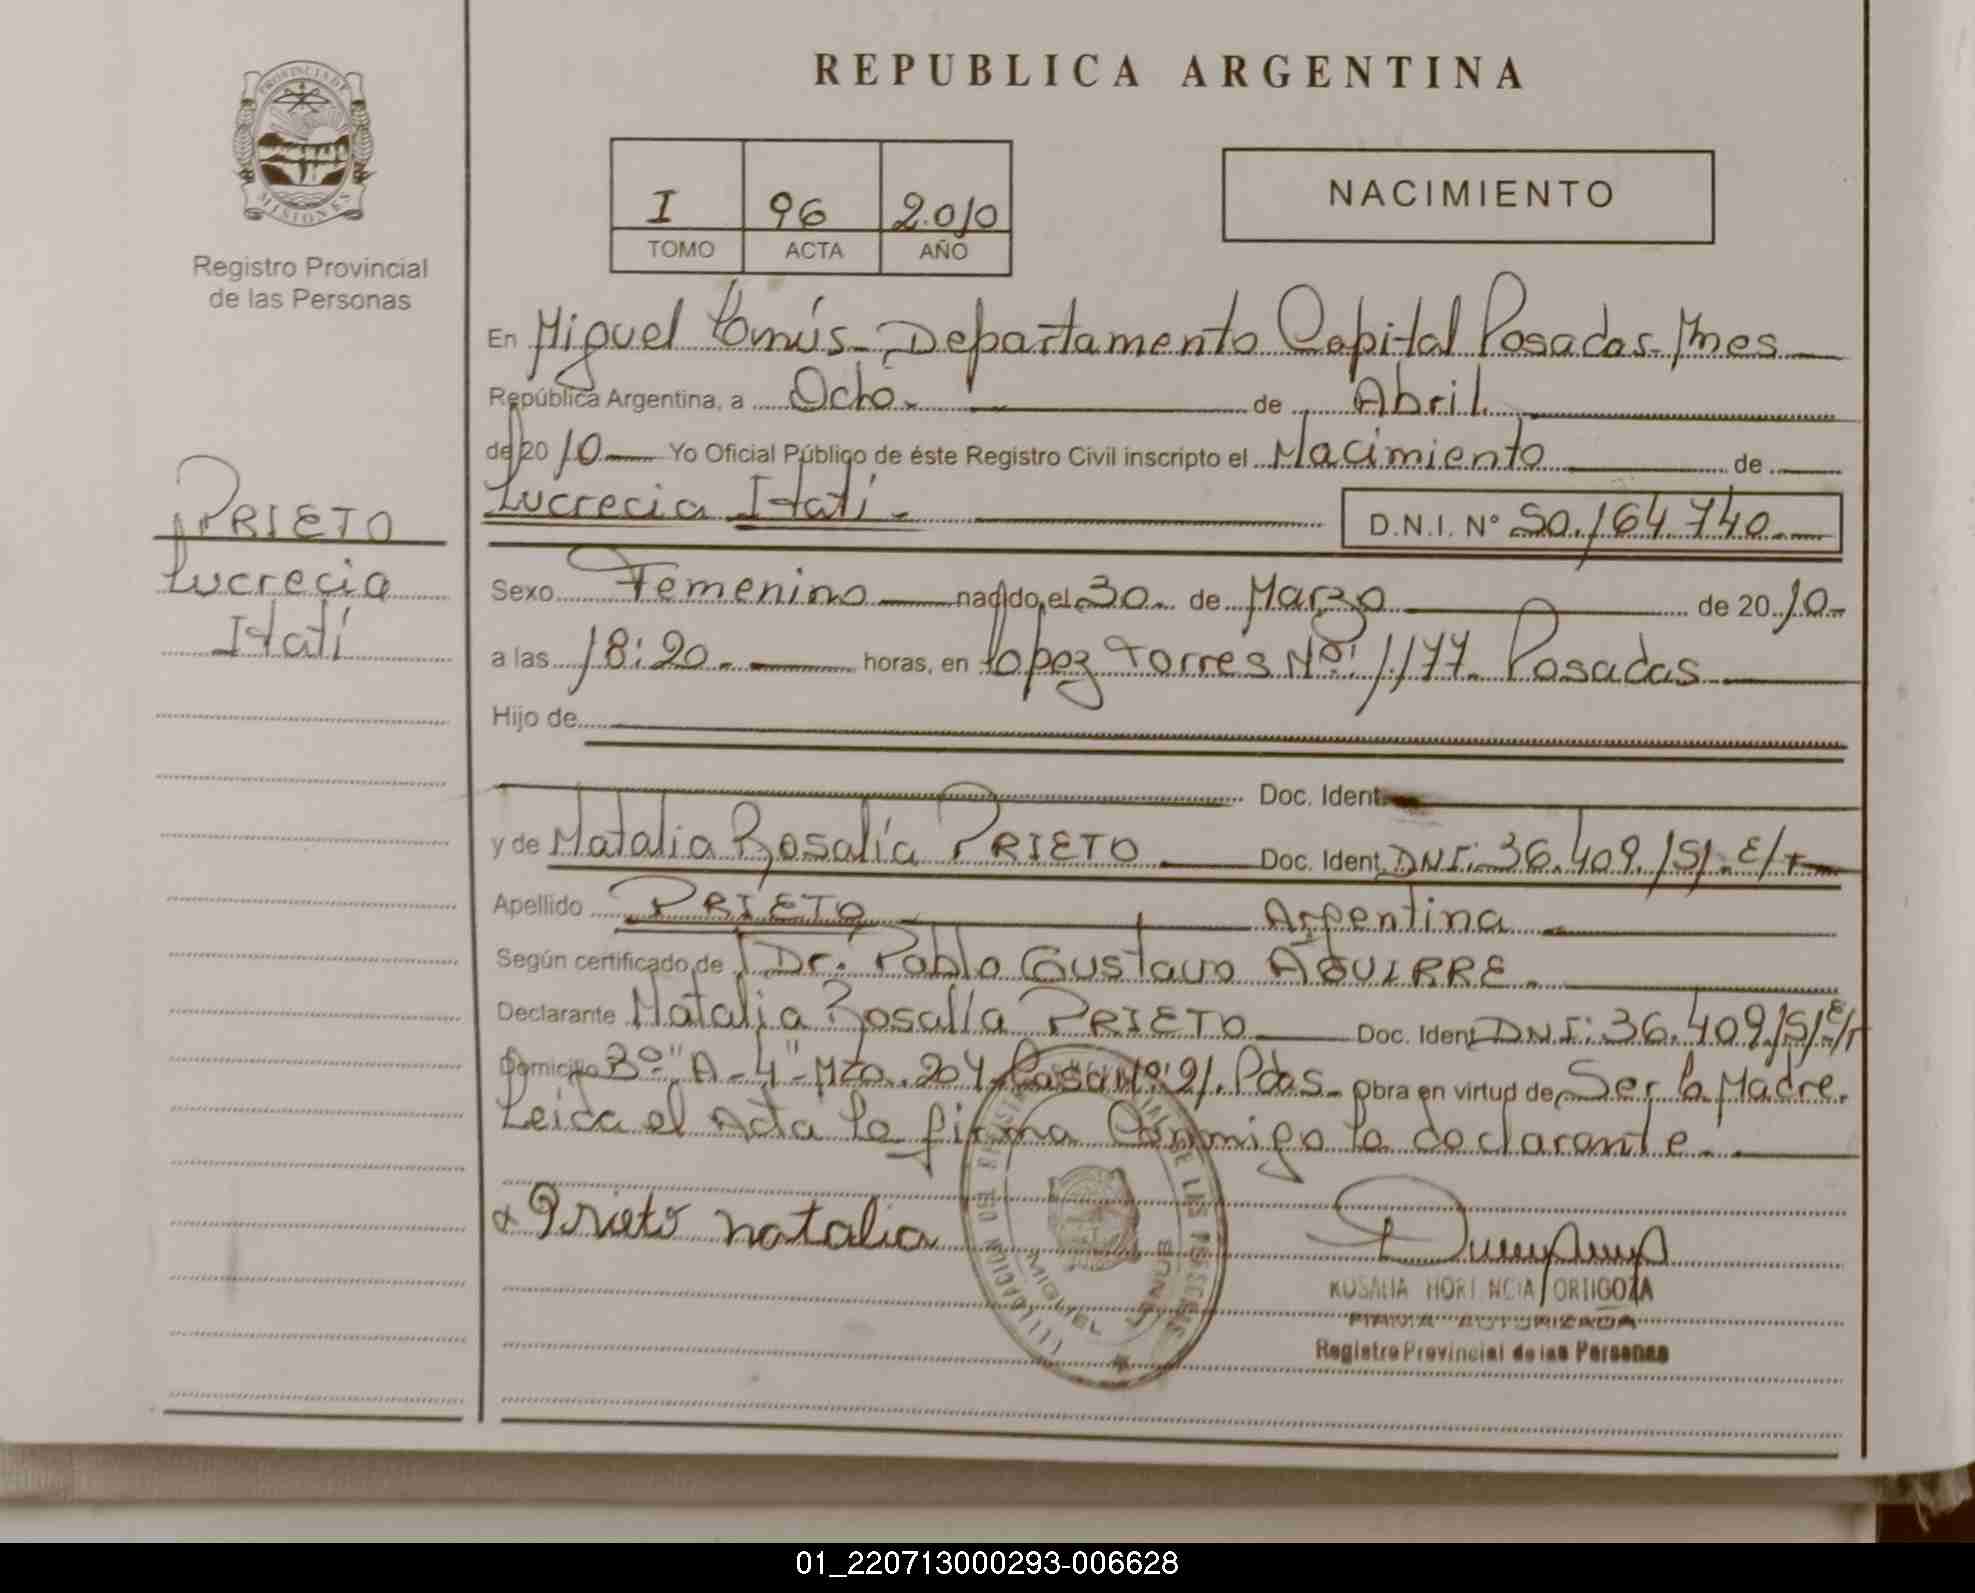 REPUBLICA ARGENTINA
PROVINCIA DE MISIONES
Registro Provincial
de las Personas
I 96 2.010
TOMO ACTA AÑO
NACIMIENTO
PRIETO
Lucrecia
Itatí
En Miguel Lanús - Departamento Capital Posadas - Mnes
República Argentina, a Ocho de Abril
de 2010 Yo Oficial Público de éste Registro Civil inscripto el Nacimiento de
Lucrecia Itatí - D.N.I. N° 50.164.740
Sexo Femenino nacido el 30 de Marzo de 2010
a las 18:20 horas, en López Torres Nº: 1177 - Posadas
Hijo de
Doc. Ident.
y de Natalia Rosalía PRIETO Doc. Ident. DNI: 36.409.151 - E/T
Apellido PRIETO Argentina
Según certificado de Dr. Pablo Gustavo AGUIRRE
Declarante Natalia Rosalía PRIETO Doc. Ident DNI: 36.409.151 E/T
Domicilio Bº "A-4" - Mza. 204 Casa Nº: 21. Pdas - Obra en virtud de Ser la Madre.
Leida el Acta la firma Conmigo la declarante.
x Prieto natalia
MIGUEL
ROSALIA HORTENCIA ORTIGOZA
FIRMA AUTORIZADA
Registro Provincial de las Personas
01_220713000293-006628